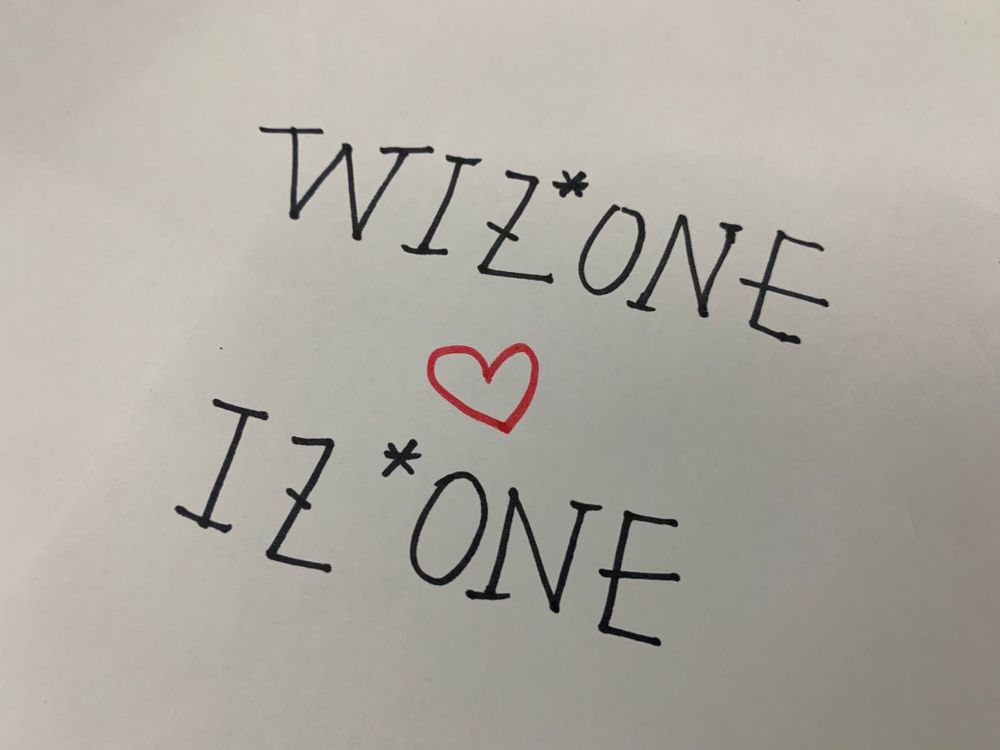 WIZ*ONE
IZ*ONE